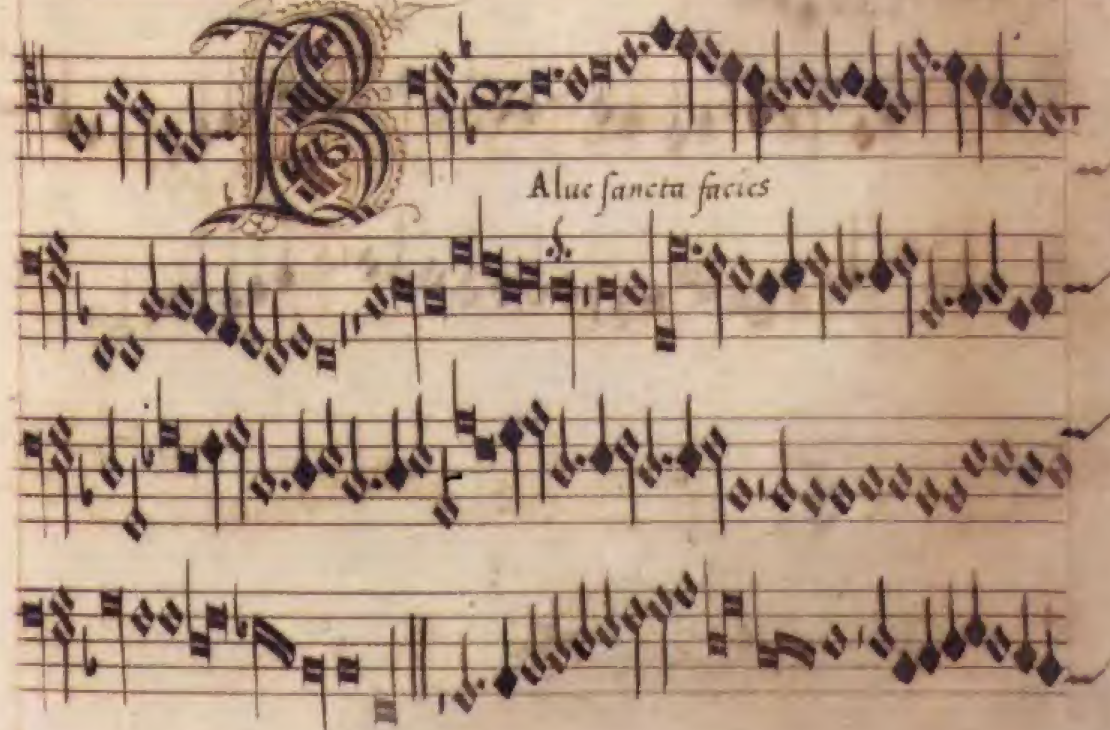 BAlue sancta facies